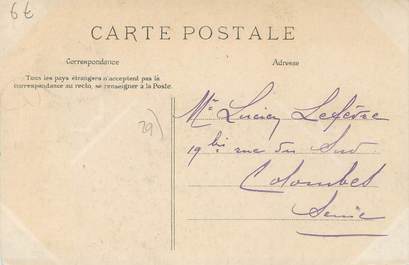 6€
CARTE POSTALE
Correspondance
Adresse
Tous les pays étrangers n'acceptent pas la
correspondance au recto, se renseigner à la Poste.
29)
Mr Lucien Lefèvre
19 bis rue du Sud
Colombes
Seine